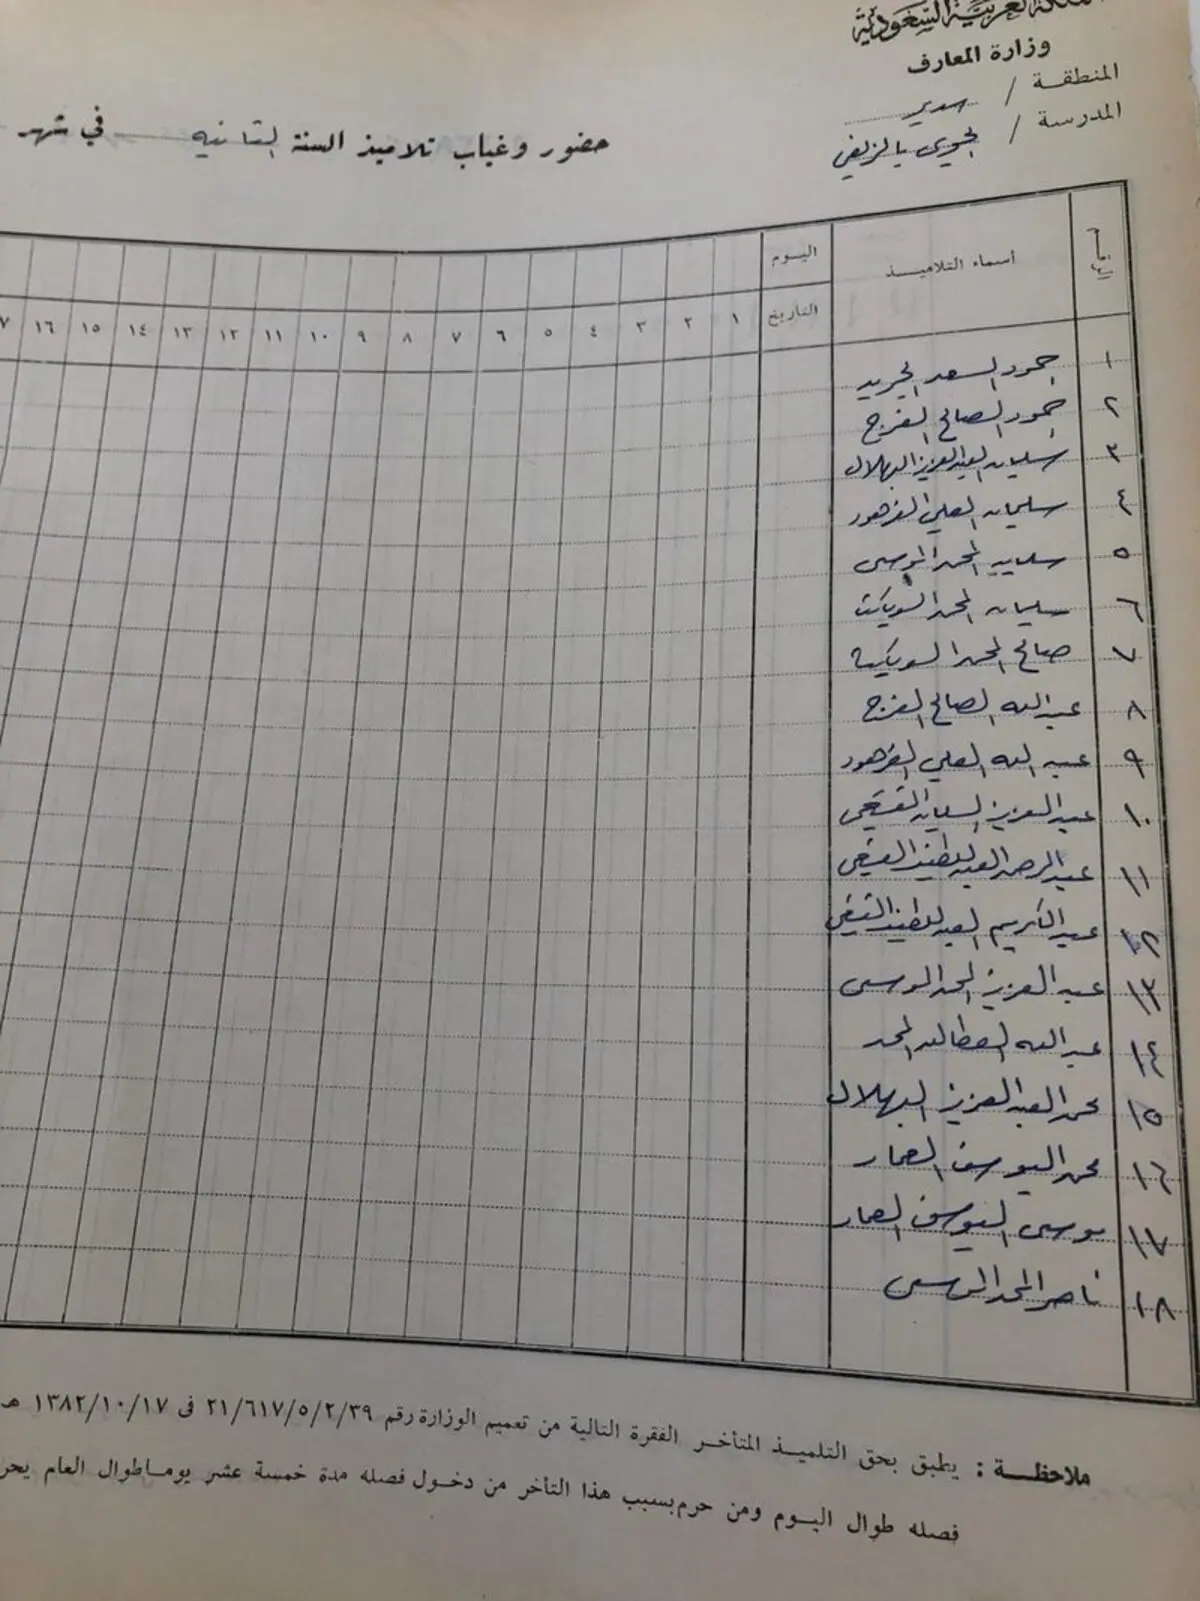 المملكة العربية السعودية
وزارة المعارف
المنطقة / سدير
المدرسة / بالزلفي
حضور وغياب تلاميذ السنة الثانيه في شهر
الرقم أسماء التلاميذ اليوم
التاريخ ١ ٢ ٣ ٤ ٥ ٦ ٧ ٨ ٩ ١٠ ١١ ١٢ ١٣ ١٤ ١٥ ١٦
١ حمود السعد
٢ حمود الصالح الفرج
٣ سليمان العبدالعزيز البهلال
٤ سليمان العلي الفرهود
٥ سليمان المحمد الموسى
٦ سليمان المحمد السويكت
٧ صالح المحمد السويكت
٨ عبدالله الصالح الفرج
٩ عبد الله العلي الفرهود
١٠ عبدالعزيز السليمان
١١ عبدالرحمن العبداللطيف
١٢ عبدالكريم العبداللطيف
١٣ عبدالعزيز المحمد الموسى
١٤ عبدالله العطالله المحمد
١٥ محمد العبدالعزيز البهلال
١٦ محمد اليوسف العمار
١٧ موسى اليوسف العمار
١٨ ناصر المحمد الموسى
ملاحظة : يطبق بحق التلميذ المتأخر الفقرة التالية من تعميم الوزارة رقم ٢١/٦١٧/٥/٢/٣٩ فى ١٣٨٢/١٠/١٧ هـ
فصله طوال اليوم ومن حرم بسبب هذا التأخر من دخول فصله مدة خمسة عشر يوما طوال العام يحر